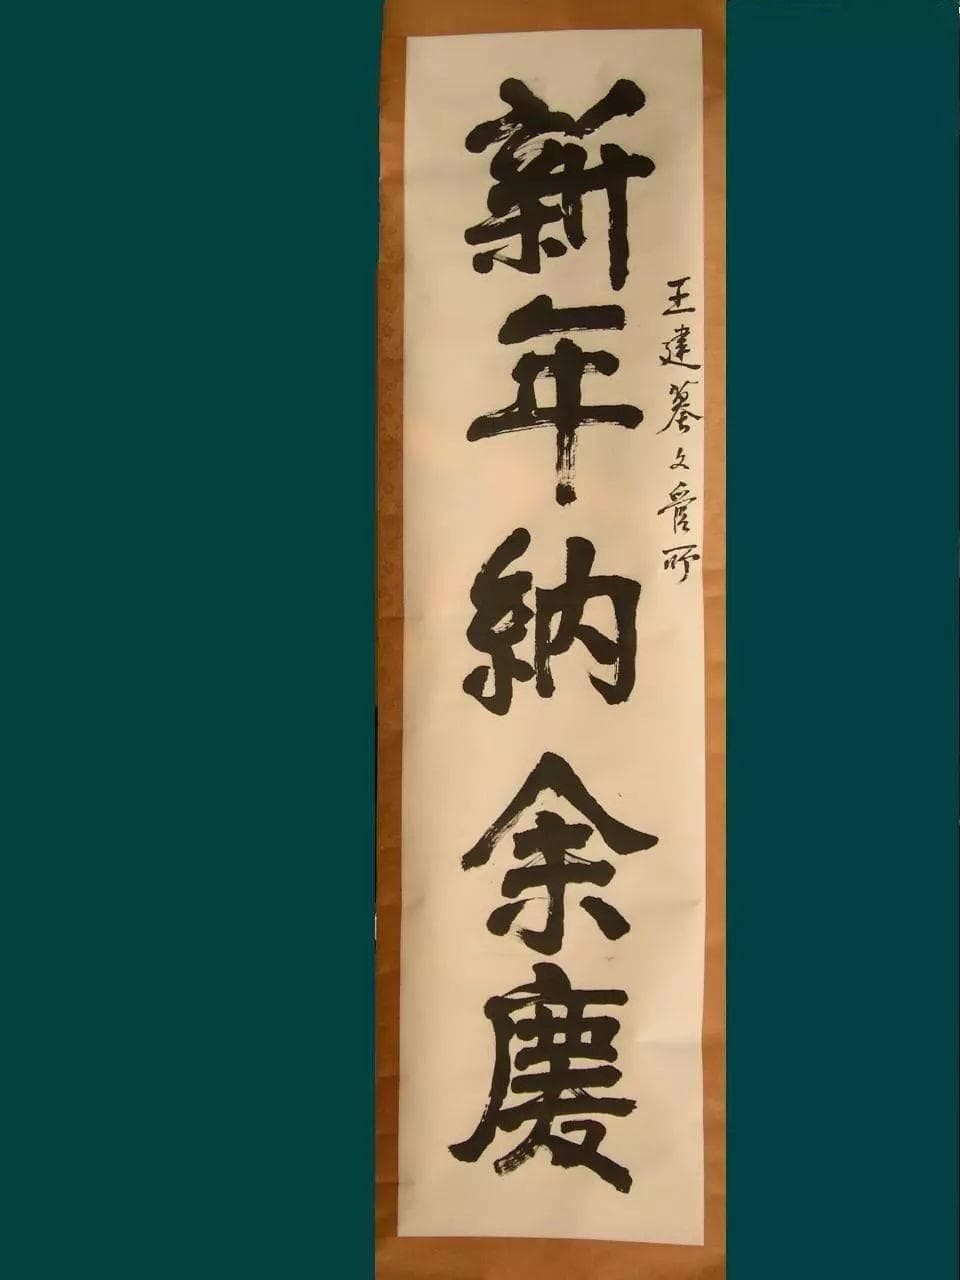 王建墓文管所
新年納余慶